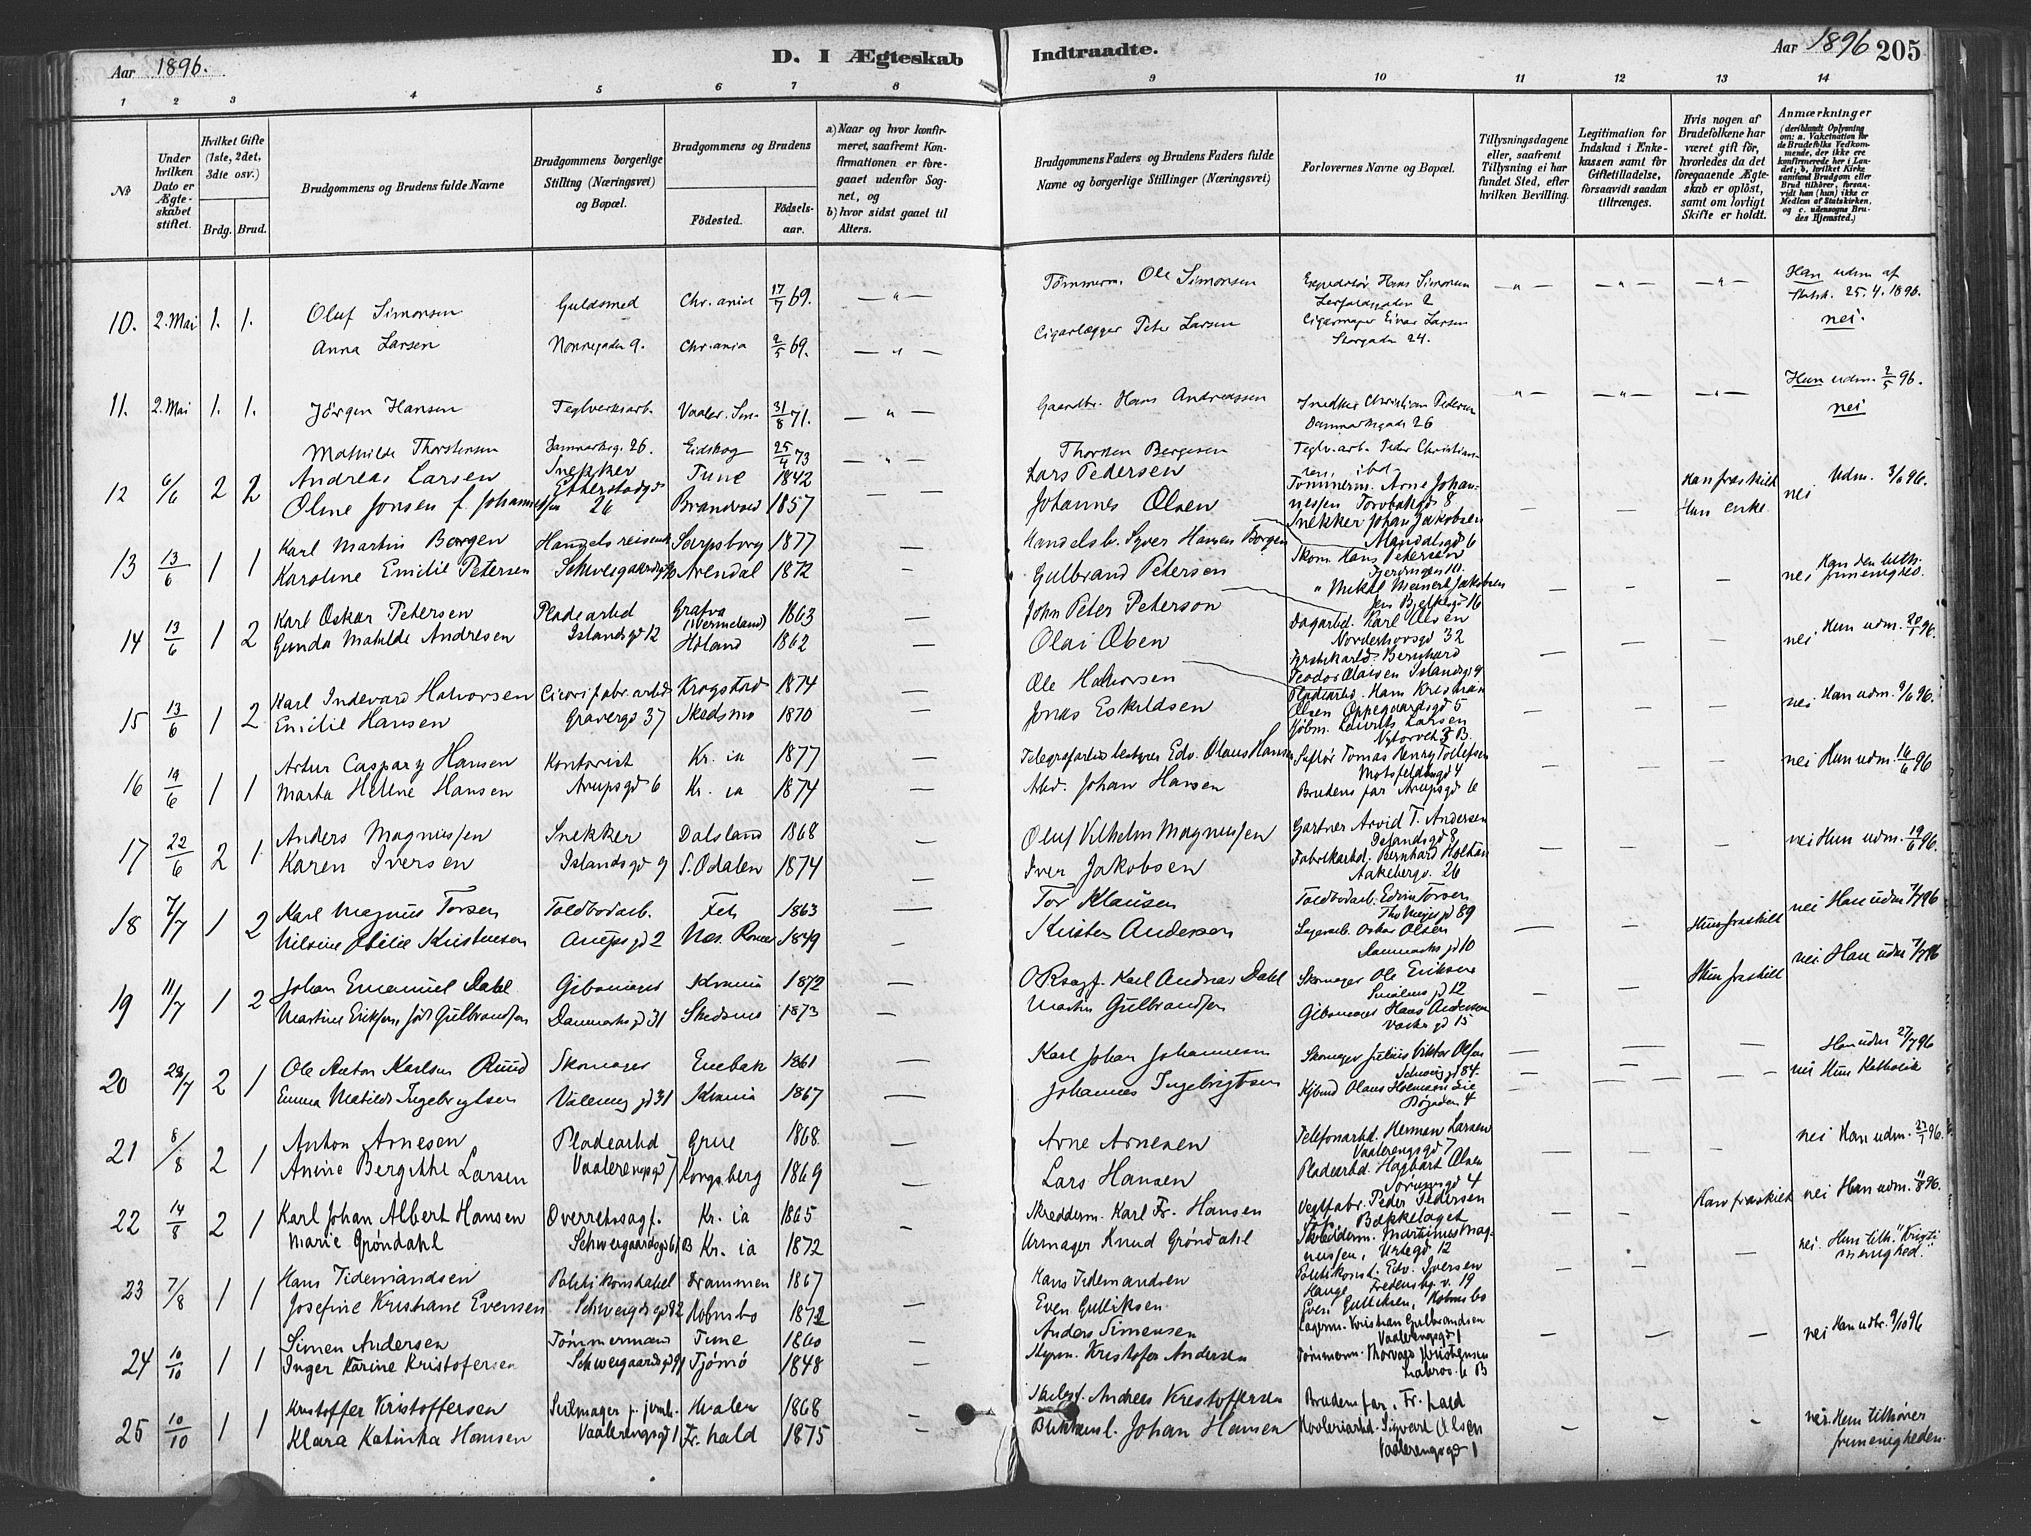 Aar 1896.
D. I Ægteskab Indtraadte.
Aar 1896 205
1 2 3 4 5 6 7 8 9 10 11 12 13 14
No
Under hvilken Dato er Ægteskabet stiftet.
Hvilket Gifte (1ste, 2det, 3die osv.)
Brdg. Brud.
Brudgommens og Brudens fulde Navne
Brudgommens borgerlige Stilling (Næringsvei) og Bopæl.
Brudgommens og Brudens
Födested. Födselsaar.
a) Naar og hvor konfirmeret, saafremt Konfirmationen er foregaaet udenfor Sognet, og
b) hvor sidst gaaet til Alters.
Brudgommens Faders og Brudens Faders fulde Navne og borgerlige Stillinger (Næringsvei)
Forlovernes Navne og Bopæl.
Tillysningsdagene eller, saafremt Tillysning ei har fundet Sted, efter hvilken Bevilling.
Legitimation for Indskud i Enkekassen samt for Giftetilladelse, forsaavidt saadan tiltrænges.
Hvis nogen af Brudefolkene har været gift för, hvorledes da det foregaaende Ægteskab er oplöst, samt om lovligt Skifte er holdt.
Anmærkninger
(deriblandt Oplysning om: a. Vakcination for de Brudefolks Vedkommende, der ikke ere konfirmerede her i Landet; b. hvilket Kirkesamfund Brudgom eller Brud tilhörer, forsaavidt han (hun) ikke er Medlem af Statskirken, og c. udensogns Brudes Hjemsted.)
10. 2. Mai 1. 1. Oluf Simonsen Guldsmed Chr.ania 17/7 69. — " — Tömmerm. Ole Simonsen Expeditör Hans Simonsen — " — — " — — " — Han udm. af
Leirfaldsgaden 2 25.4.1896.
Anna Larsen Nonnegaden 9. Chr.ania 2/5 69. — " — Cigarlægger Peter Larsen Cigarmager Einar Larsen nei.
Storgaden 24.
11. 2. Mai 1. 1. Jörgen Hansen Teglverksarb. Vaaler. Sm. 31/8 71. — " — Gaardbr. Hans Andreassen Snedker Christian Pedersen — " — — " — — " — Han udm. 2/5 96.
Danmarksgade 26 nei
Mathilde Thorstensen Danmarksg. 26. Eidskog 25/4 73 — " — Thorsten Bergesen Teglv.arb. Peder Christiansen, ibd
12 6/6 2 2 Andreas Larsen Snekker Tune 1842 — Lars Pedersen Tömmerm. Arne Johannessen Torvbakgd 8 — — Han fraskilt nei Udm. 3/6 96.
Oline Jonsen f. Johannessen Etterstadgd 26 Brandvold 1857 — Johannes Olsen Snekker Johan Jakobsen Mandalsgd 6 Hun enke
13 13/6 1 1 Karl Martin Borgen Handelsreisende Sarpsborg 1877 — Handelsb. Syver Hansen Borgen Skom. Hans Petersen — — — nei Han den luth. frimenighed.
Karoline Emilie Petersen Schwesgaardsgd Arendal 1872 — Gulbrand Petersen " Mikal Meinert Jakobsen Jens Bjelkesgd 16
14 13/6 1 2 Karl Oskar Petersen Pladearbd Grafva (Vermeland) 1863 — John Peter Peterson Dagarbd. Karl Olsen Norderhovsgd 32 — — — nei Han udm. 20/1 96.
Gunda Matilde Andresen Islandsgd 12 Höland 1862 — Olai Olsen Fabrikarbd. Bernhard Teodor Olaisen Islandsgd 9
15 13/6 1 2 Karl Indevard Halvorsen Cicorifabr.arbd Krogstad 1874 — Ole Halvorsen Pladearbd. Hans Kristian Olsen Oppegaardsgd 5 — — — nei Han udm. 9/6 96.
Emilie Hansen Gravergd 37 Skedsmo 1870 — Jonas Eskildsen Kjöbm. Lauritz Larsen Nytorvet 3 B.
16 19/6 1 1 Artur Caspary Hansen Kontorist Kr. ia 1877 — Telegrafartist bestyrer Edv. Olaus Hansen Tomas Henry Tollefsen Motzfeldtsgd 4 — — — nei Han udm. 16/6 96
Marta Helene Hansen Arupsgd 6 Kr. ia 1874 — Arbd. Johan Hansen Brudens far Arupsgd 6
17 22/6 2 1 Anders Magnussen Snekker Dalsland 1868 — Oluf Vilhelm Magnussen Gartner Arvid T. Andersen Islandsgd 8 — — — nei Han udm. 19/6 96.
Karen Iversen Islandsgd 9 S. Odalen 1874 — Iver Jakobsen Fabrikarbd. Bernhard Holtan Aakebergv. 26
18 7/7 1 2 Karl Magnus Torsen Toldbodarb. Fet 1863 — Tor Klausen Toldbodarb. Edvin Torsen Ths Meyers gd 89 — — Hun fraskilt nei Han udm 7/7 96
Nilsine Otilie Kristensen Arups gd 2 Nes. Romer 1849 — Kristen Andersen Lagerarb. Oskar Olsen Danmarks gd 10
19 11/7 1 2 Johan Emanuel Dahl Gibsmager Kr.ania 1872 — O.R.sagf. Karl Andreas Dahl Skomager Ole Eriksen Smålens gd 12 — — Hun fraskilt nei Han udm 7/7 96
Martine Eriksen, föd Gulbrandsen Danmarks gd 31 Skedsmo 1873 — Martin Gulbrandsen Gibsmager Hans Andersen gd 15
20 28/7 2 1 Ole Anton Karlsen Ruud Skomager Enebak 1861 — Karl Johan Johannesen Skomager Julius Viktor Olsen Schweig gd 84. — — — Han udm 27/7 96
Emma Matilde Ingebrigtsen Vålereng gd 31 Kr.ania 1867 — Johannes Ingebrigtsen Kjbmd Olaus Holmsen Lie Bögaden 4 — — — nei Hun Katholik
21 8/8 2 1 Anton Arnesen Pladearbd Grue 1868 — Arne Arnesen Telefonarbd. Herman Larsen Vaalerengsgd 7 — — — nei Han udm. 27/7 96.
Anine Bergithe Larsen Vaalerengsgd 7 Kongsberg 1869 — Lars Hansen Pladearbd. Hagbart Olsen Sörumsgd 4
22 14/8 2 1 Karl Johan Albert Hansen Overretssagf. Kr. ia 1865 — Skredderm. Karl Fr. Hansen Veglfabr. Peder Pedersen Bækkelaget — — Han fraskilt nei Han udm. 11/8 96.
Marie Gröndahl Schweigaardsgd 61 B Kr. ia 1872 — Urmager Knud Gröndahl Skredderm. Martinus Magnussen, Urtegd 12
23 7/8 1 1 Hans Tidemandsen Politikonstabel Drammen 1867 — Hans Tidemandsen Politikonst. Edv. Iversen Hauge, Fredensbg. v. 19 — — — nei. Hun tilh. "Kristi menighed."
Josefine Kristiane Evensen Schweigds gd 92 Holmsbo 1872 — Even Gulliksen Even Gulliksen, Holmsbo
24 10/10 1 1 Simen Andersen Tömmermand Tune 1860 — Anders Simensen Lagerm. Kristian Gulbrandsen Vaalerengsgd 1 — — — nei Han udtr. 9/10 96
Inger Karine Kristofersen Schweigaardsgd 91 Tjömö 1848 — Styrm. Kristofer Andersen Tömmerm. Thorvald Kristensen 6 B
25 10/10 1 1 Kristoffer Kristoffersen Seilmager Hvaler 1868 — Andreas Kristoffersen Brudens far, Fr. hald — — — nei. Hun tilhörer frimenigheden.
Klara Katinka Hansen Vaalerengsgd 1 Fr. hald 1875 — Johan Hansen Høvleriarbd. Sigvart Olsen Vaalerengsgd 1